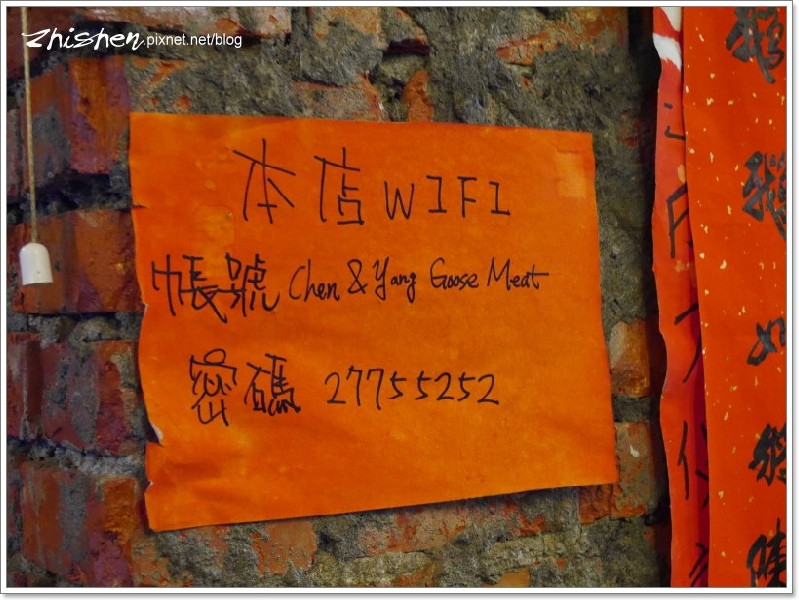 zhishen.pixnet.net/blog
本店 WIFI
帳號 Chen & Yang Goose Meat
密碼 27755252